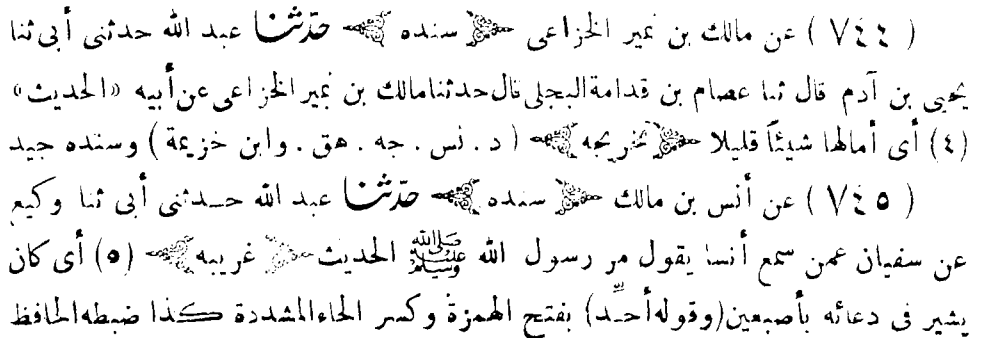 ( ٧٤٤ ) عن مالك بن نمير الخزاعى ﴿ سنده ﴾ حدّثنا عبد الله حدثنى أبى ثنا
يحيى بن آدم قال ثنا عصام بن قدامة البجلى قال حدثنا مالك بن نمير الخزاعى عن أبيه «الحديث»
(٤) أى أمالها شيئًا قليلا ﴿ تخريجه ﴾ ( د . نس . جه . هق . وابن خزيمة ) وسنده جيد
( ٧٤٥ ) عن أنس بن مالك ﴿ سنده ﴾ حدّثنا عبد الله حدثنى أبى ثنا وكيع
عن سفيان عمن سمع أنسا يقول مر رسول الله ﷺ الحديث ﴿ غريبه ﴾ (٥) أى كان
يشير فى دعائه بأصبعين (وقوله أحِّد) بفتح الهمزة وكسر الحاء المشددة كذا ضبطه الحافظ